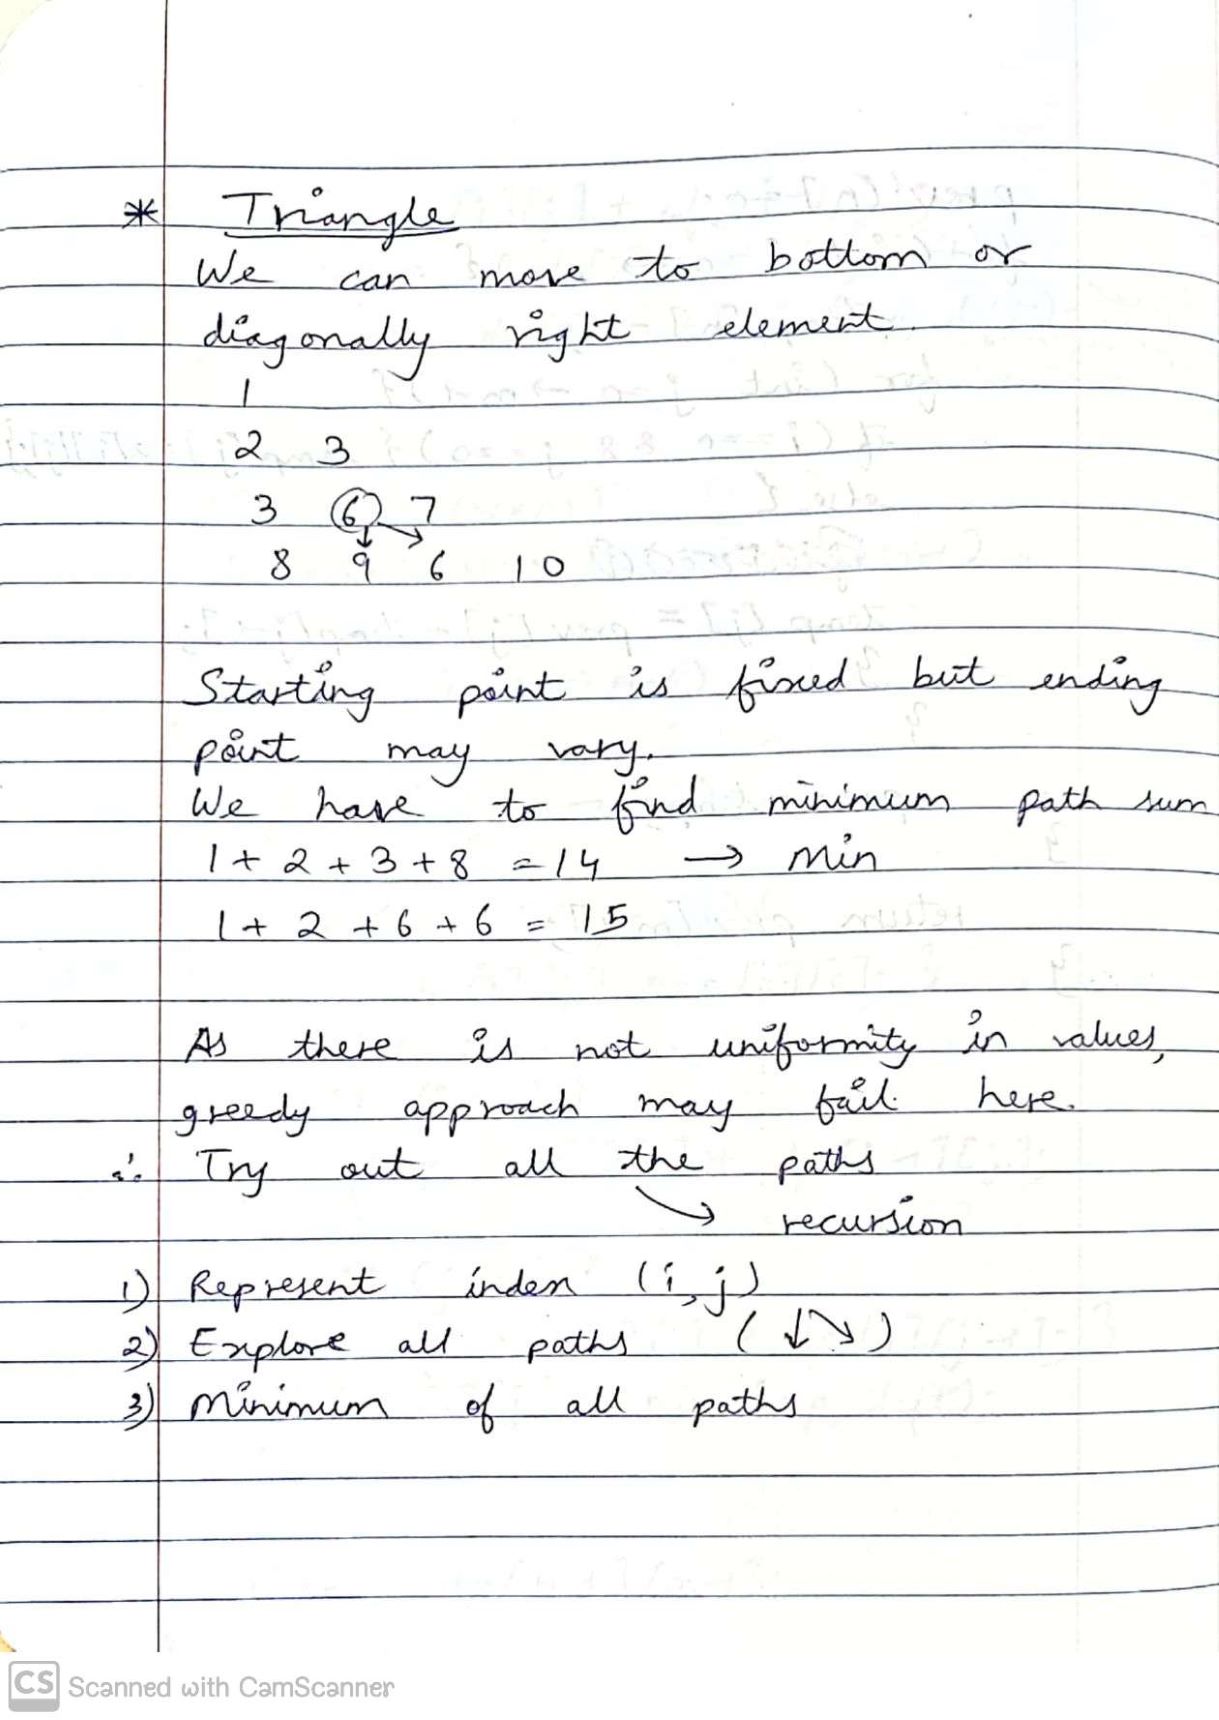 * Triangle
We can move to bottom or
diagonally right element.
1
2 3
3 6 7
8 9 6 10
Starting point is fixed but ending
point may vary.
We have to find minimum path sum
1 + 2 + 3 + 8 = 14 → Min
1 + 2 + 6 + 6 = 15
As there is not uniformity in values,
greedy approach may fail here.
∴ Try out all the paths
↘ recursion
1) Represent index (i, j)
2) Explore all paths (↓↘)
3) Minimum of all paths
CS Scanned with CamScanner